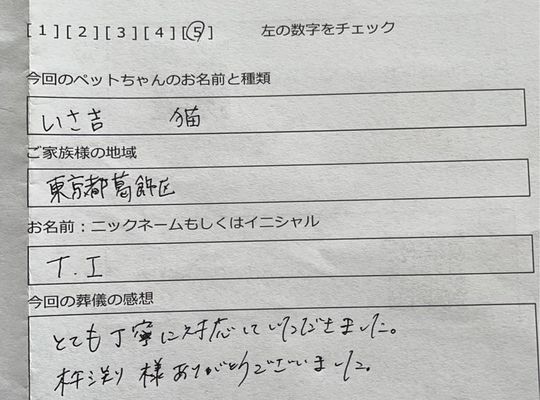 [ 1 ] [ 2 ] [ 3 ] [ 4 ] [ 5 ] 左の数字をチェック
今回のペットちゃんのお名前と種類
いさ吉 猫
ご家族様の地域
東京都葛飾区
お名前:ニックネームもしくはイニシャル
T.I
今回の葬儀の感想
とても丁寧に対応していただきました。
様ありがとうございました。